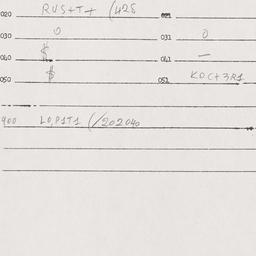 020 RUS+T+ (428 021
030 0 031 0
040 $ 041 —
050 $ 051 KOC+3R1
400 LO,P1T1 (/202040